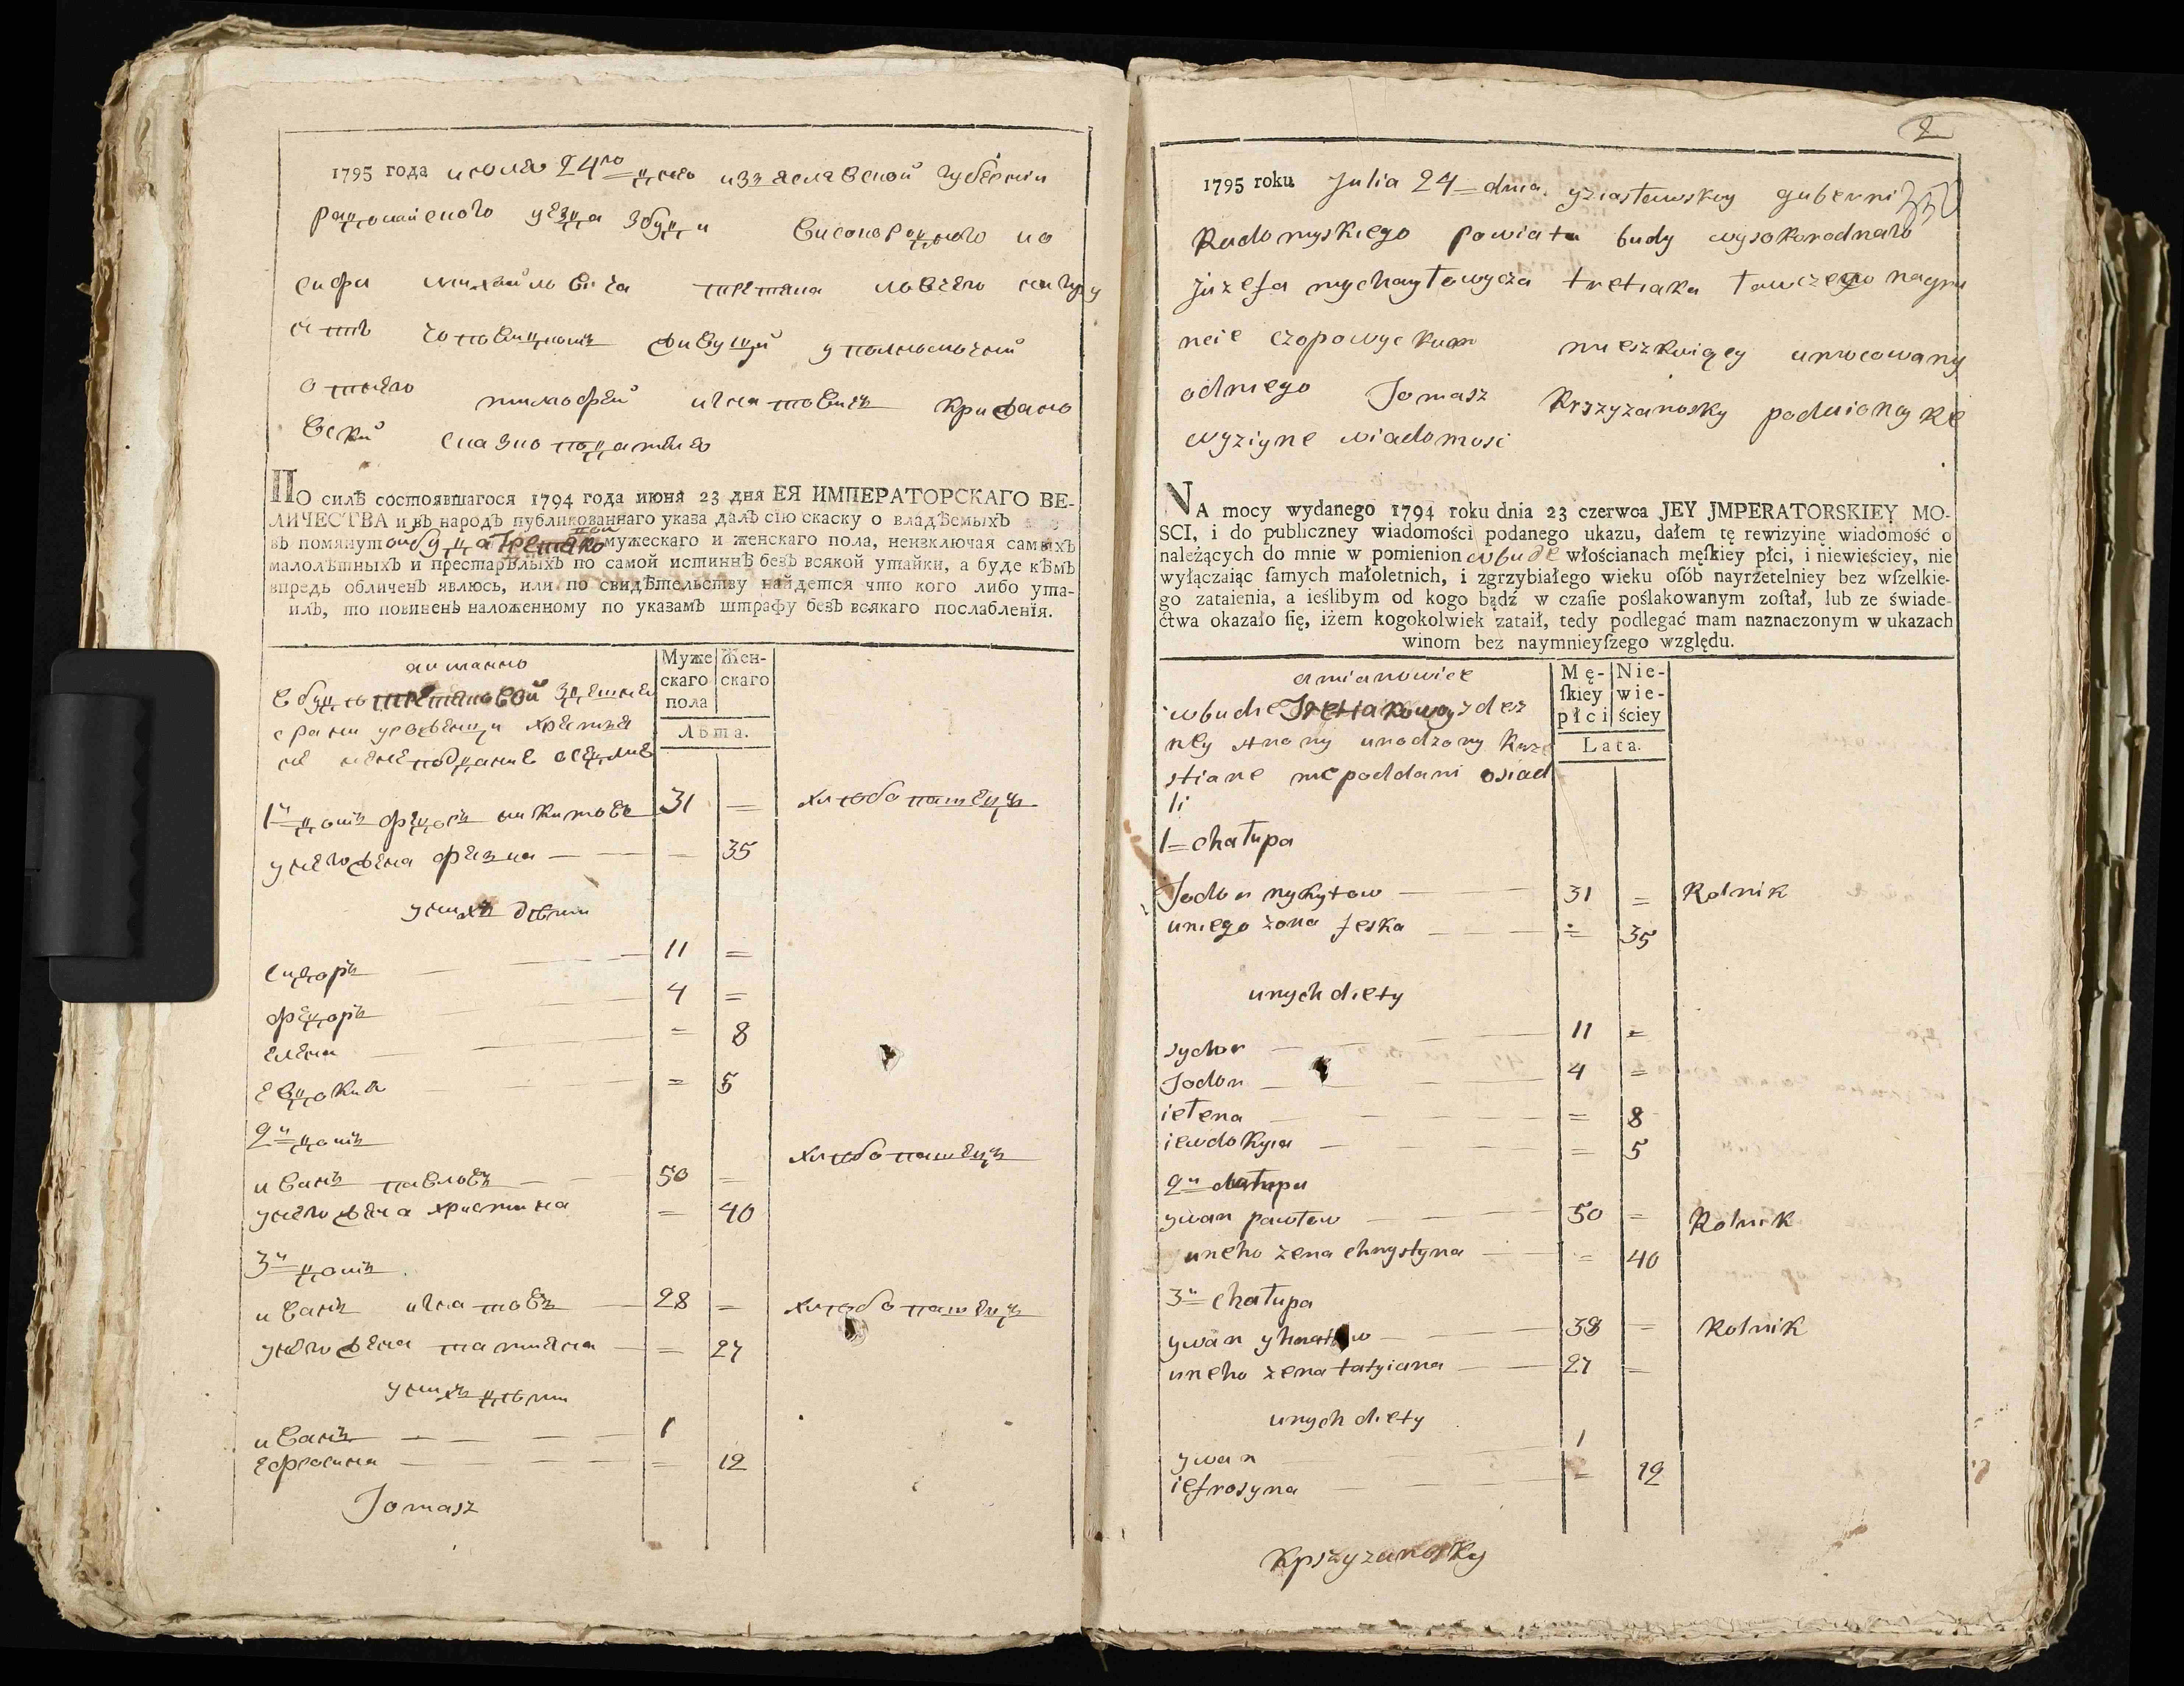 1795 года июля 24го дня изъяславской губернии
радомиского уезда збуди високородного ио
сифа михайловича третяка ловчего на гру
нтѣ чоповицкомъ живущй уполномочний
отнего тимофей игнатовичъ крижано
вский сказкоподатель
ПО силѣ состоявшагося 1794 года июня 23 дня ЕЯ ИМПЕРАТОРСКАГО ВЕ-
ЛИЧЕСТВА и въ народъ публикованнаго указа далъ сію скаску о владѣемыхъ
въ помянутой буда Третяко мужескаго и женскаго пола, неизключая самыхъ
малолѣтныхъ и престарѣлыхъ по самой истиннѣ безъ всякой утайки, а буде кѣмъ
впредь обличенъ явлюсь, или по свидѣтельству найдется что кого либо ута-
илъ, то повиненъ наложенному по указамъ штрафу безъ всякаго послабленія.
аиманно
Муже
скаго
пола
Жен-
скаго
Лѣта.
в будѣ третяковой здешне
1й домъ федоръ никитовъ 31 = хлебопашецъ
унего жена феска — — — 35
унихъ дѣти
сидоръ — — 11 =
федоръ — — 4 =
елена — — = 8
евдокия — — = 5
2й домъ
иванъ павловъ — — 50 = хлебопашецъ
унего жена христина = 40
3й домъ
иванъ игнатовъ — 28 = хлебопашецъ
унего жена татияна — = 27
унихъ дѣти
иванъ — — — 1
ефросина — — — = 12
Tomasz
2
1795 roku Julia 24 = dnia yziasławskey guberni
Radomyskiego powiatu budy wysokorodnaho
Juzefa mychayłowycza tretiaka łowczego nagru
ncie czopowyckum mieszkaiący umocowany
odniego Tomasz Krzyzanosky
wyziyne wiadomosi
NA mocy wydanego 1794 roku dnia 23 czerwca JEY JMPERATORSKIEY MO-
SCI, i do publiczney wiadomości podanego ukazu, dałem tę rewizyinę wiadomość o
należących do mnie w pomienion wbude włościanach męſkiey płci, i niewieściey, nie
wyłączaiąc ſamych małoletnich, i zgrzybiałego wieku oſób nayrzetelniey bez wſzelkie-
go zataienia, a ieślibym od kogo bądź w czaſie poślakowanym zoſtał, lub ze świade-
ctwa okazało ſię, iżem kogokolwiek zataił, tedy podlegać mam naznaczonym w ukazach
winom bez naymnieyſzego względu.
amianowicie
Mę-
ſkiey
płci
Nie-
wie-
ściey
Lata.
wbudie Tretiakowoy zdesz
ney strony urodzony Krze
stiane nie poddani osiad
li
1 = chałupa
Fodor nykytow — — 31 = Rolnik
uniego żona feska — — = 35
unych diety
sydor — — 11 =
Fodor — — 4 =
ielena — — = 8
iewdokyia — — = 5
2u chałupa
ywan pawłow — — 50 = Rolnik
uneho żena chrystyna — = 40
3u chałupa
ywan yhnatow — — 38 = Rolnik
uneho żena tatyiana — 27 =
unych diety
ywan — 1
iefrosyna — — = 12
Kpszyzanosky